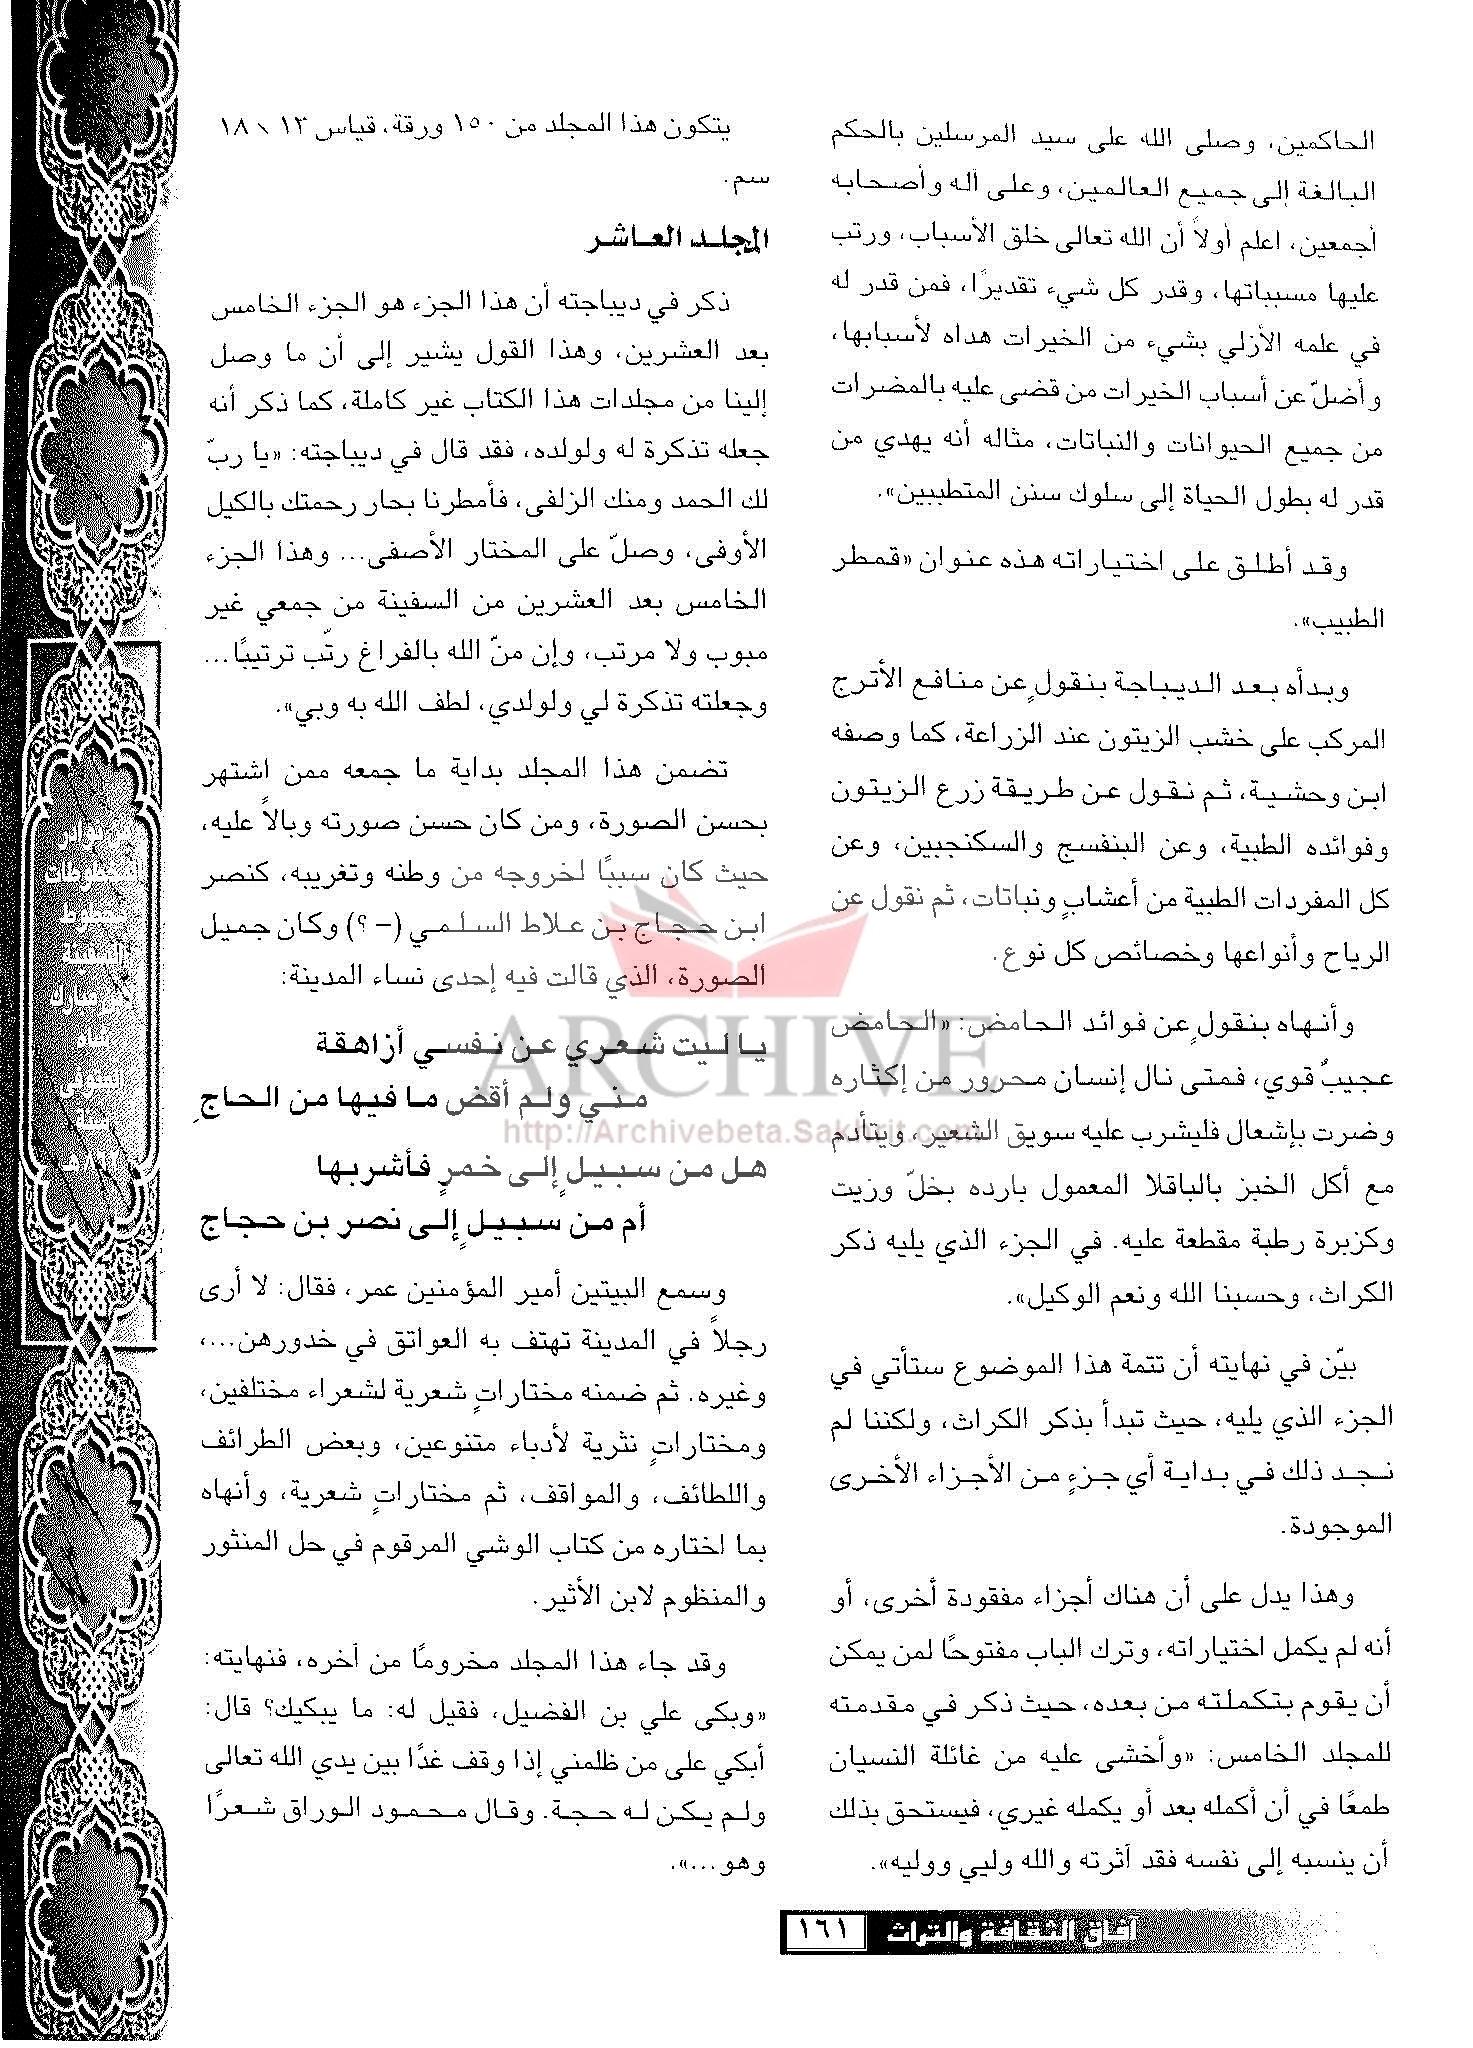 الحاكمين، وصلى الله على سيد المرسلين بالحكم
البالغة إلى جميع العالمين، وعلى آله وأصحابه
أجمعين، اعلم أولاً أن الله تعالى خلق الأسباب، ورتب
عليها مسبباتها، وقدر كل شيء تقديرًا، فمن قدر له
في علمه الأزلي بشيء من الخيرات هداه لأسبابها،
وأضلّ عن أسباب الخيرات من قضى عليه بالمضرات
من جميع الحيوانات والنباتات، مثاله أنه يهدي من
قدر له بطول الحياة إلى سلوك سنن المتطببين».
وقد أطلق على اختياراته هذه عنوان «قمطر
الطبيب».
وبدأه بعد الديباجة بنقولٍ عن منافع الأترج
المركب على خشب الزيتون عند الزراعة، كما وصفه
ابن وحشية، ثم نقول عن طريقة زرع الزيتون
وفوائده الطبية، وعن البنفسج والسكنجبين، وعن
كل المفردات الطبية من أعشابٍ ونباتات، ثم نقول عن
الرياح وأنواعها وخصائص كل نوع.
وأنهاه بنقولٍ عن فوائد الحامض: «الحامض
عجيبٌ قوي، فمتى نال إنسان محرور من إكثاره
وضرت بإشعال فليشرب عليه سويق الشعير، ويتأدم
مع أكل الخبز بالباقلا المعمول بارده بخلّ وزيت
وكزبرة رطبة مقطعة عليه. في الجزء الذي يليه ذكر
الكراث، وحسبنا الله ونعم الوكيل».
بيّن في نهايته أن تتمة هذا الموضوع ستأتي في
الجزء الذي يليه، حيث تبدأ بذكر الكراث، ولكننا لم
نجد ذلك في بداية أي جزءٍ من الأجزاء الأخرى
الموجودة.
وهذا يدل على أن هناك أجزاء مفقودة أخرى، أو
أنه لم يكمل اختياراته، وترك الباب مفتوحًا لمن يمكن
أن يقوم بتكملته من بعده، حيث ذكر في مقدمته
للمجلد الخامس: «وأخشى عليه من غائلة النسيان
طمعًا في أن أكمله بعد أو يكمله غيري، فيستحق بذلك
أن ينسبه إلى نفسه فقد آثرته والله وليي ووليه».
يتكون هذا المجلد من ١٥٠ ورقة، قياس ١٣ \ ١٨
سم.
المجلد العاشر
ذكر في ديباجته أن هذا الجزء هو الجزء الخامس
بعد العشرين، وهذا القول يشير إلى أن ما وصل
إلينا من مجلدات هذا الكتاب غير كاملة، كما ذكر أنه
جعله تذكرة له ولولده، فقد قال في ديباجته: «يا ربّ
لك الحمد ومنك الزلفى، فأمطرنا بحار رحمتك بالكيل
الأوفى، وصلّ على المختار الأصفى... وهذا الجزء
الخامس بعد العشرين من السفينة من جمعي غير
مبوب ولا مرتب، وإن منّ الله بالفراغ رتّب ترتيبًا...
وجعلته تذكرة لي ولولدي، لطف الله به وبي».
تضمن هذا المجلد بداية ما جمعه ممن اشتهر
بحسن الصورة، ومن كان حسن صورته وبالاً عليه،
حيث كان سببًا لخروجه من وطنه وتغريبه، كنصر
ابن حجاج بن علاط السلمي (- ؟) وكان جميل
الصورة، الذي قالت فيه إحدى نساء المدينة:
يا ليت شعري عن نفسي أزاهقة
مني ولم أقض ما فيها من الحاجِ
هل من سبيلٍ إلى خمرٍ فأشربها
أم من سبيلٍ إلى نصر بن حجاج
وسمع البيتين أمير المؤمنين عمر، فقال: لا أرى
رجلاً في المدينة تهتف به العواتق في خدورهن...،
وغيره. ثم ضمنه مختاراتٍ شعرية لشعراء مختلفين،
ومختاراتٍ نثرية لأدباء متنوعين، وبعض الطرائف
واللطائف، والمواقف، ثم مختاراتٍ شعرية، وأنهاه
بما اختاره من كتاب الوشي المرقوم في حل المنثور
والمنظوم لابن الأثير.
وقد جاء هذا المجلد مخرومًا من آخره، فنهايته:
«وبكى علي بن الفضيل، فقيل له: ما يبكيك؟ قال:
أبكي على من ظلمني إذا وقف غدًا بين يدي الله تعالى
ولم يكن له حجة. وقال محمود الوراق شعرًا
وهو...».
ARCHIVE
http://Archivebeta.Sakhrit.com
آفاق الثقافة والتراث
١٦١